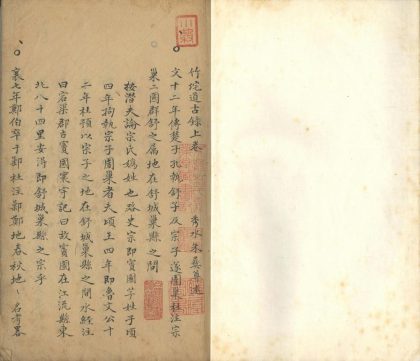 竹垞道古錄上卷
秀水朱彝尊述
文十二年傳楚子孔執舒子及宗子遂圍巢杜注宗
巢二國群舒之屬地在舒城巢縣之間
按潛夫論宗氏媯姓也路史宗即賨國子姓子頃
四年拘執宗子圍巢者夫頃王四年即魯文公十
二年杜預以宗子之地在舒城巢縣之間水經注
曰宕渠郡古賨國寰宇記曰故賨國在江流縣東
北八十四里安得即舒城巢縣之宗乎
襄七年鄭伯卒于鄵杜注鄵鄭地春秋地
名考畧